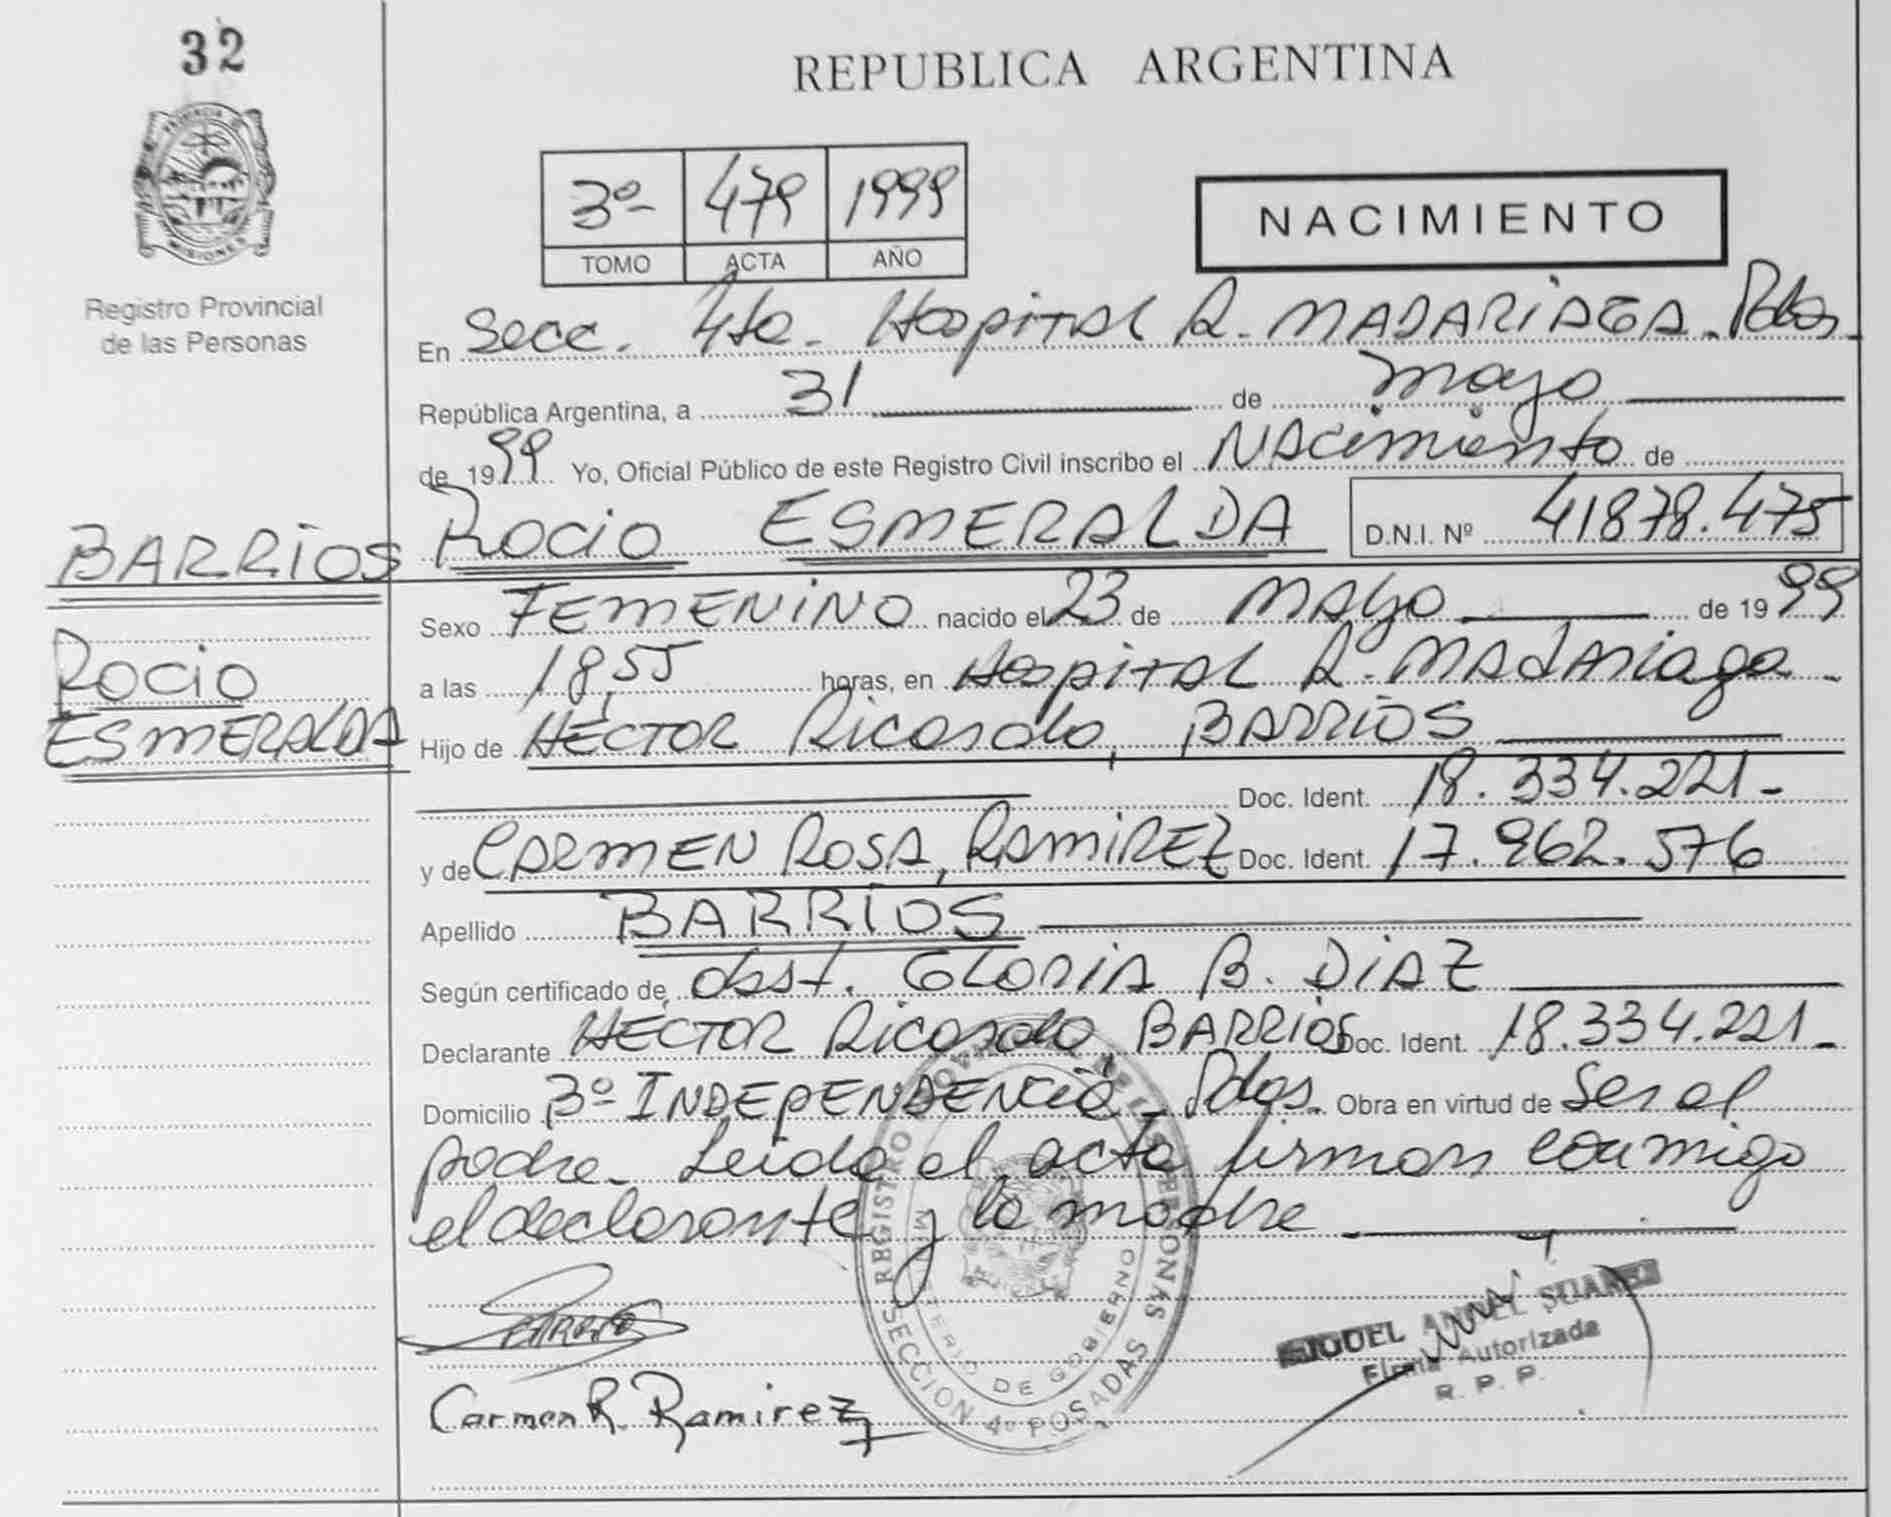 32
PROVINCIA DE
MISIONES
Registro Provincial
de las Personas
REPUBLICA ARGENTINA
3º 479 1999
TOMO ACTA AÑO
NACIMIENTO
En Secc. 4ta. Hospital R. MADARIAGA. Pdas.
República Argentina, a 31 de mayo
de 1999 Yo, Oficial Público de este Registro Civil inscribo el NAcimiento de
BARRIOS Rocio ESMERALDA D.N.I. Nº 41878.475
Sexo FEMENINO nacido el 23 de MAyo de 1999
Rocio
ESMERALDA
a las 18,55 horas, en Hospital R. MADARiaga
Hijo de HECTOR Ricardo, BARRIOS
Doc. Ident. 18.334.221-
y de CARMEN ROSA, RAMIREZ Doc. Ident. 17.962.576
Apellido BARRIOS
Según certificado de obst. GLORIA B. DIAZ
Declarante HECTOR Ricardo BARRIOS Doc. Ident. 18.334.221-
Domicilio 3º INDEPENDENCIA - Pdas. Obra en virtud de Ser el
padre. Leida el acta firman conmigo
el declarante y la madre
BARRIOS
Carmen R. Ramirez
REGISTRO PROVINCIAL DE LAS PERSONAS
MINISTERIO DE GOBIERNO
SECCION 4º POSADAS
MIGUEL ANGEL SUAREZ
Firma Autorizada
R. P. P.